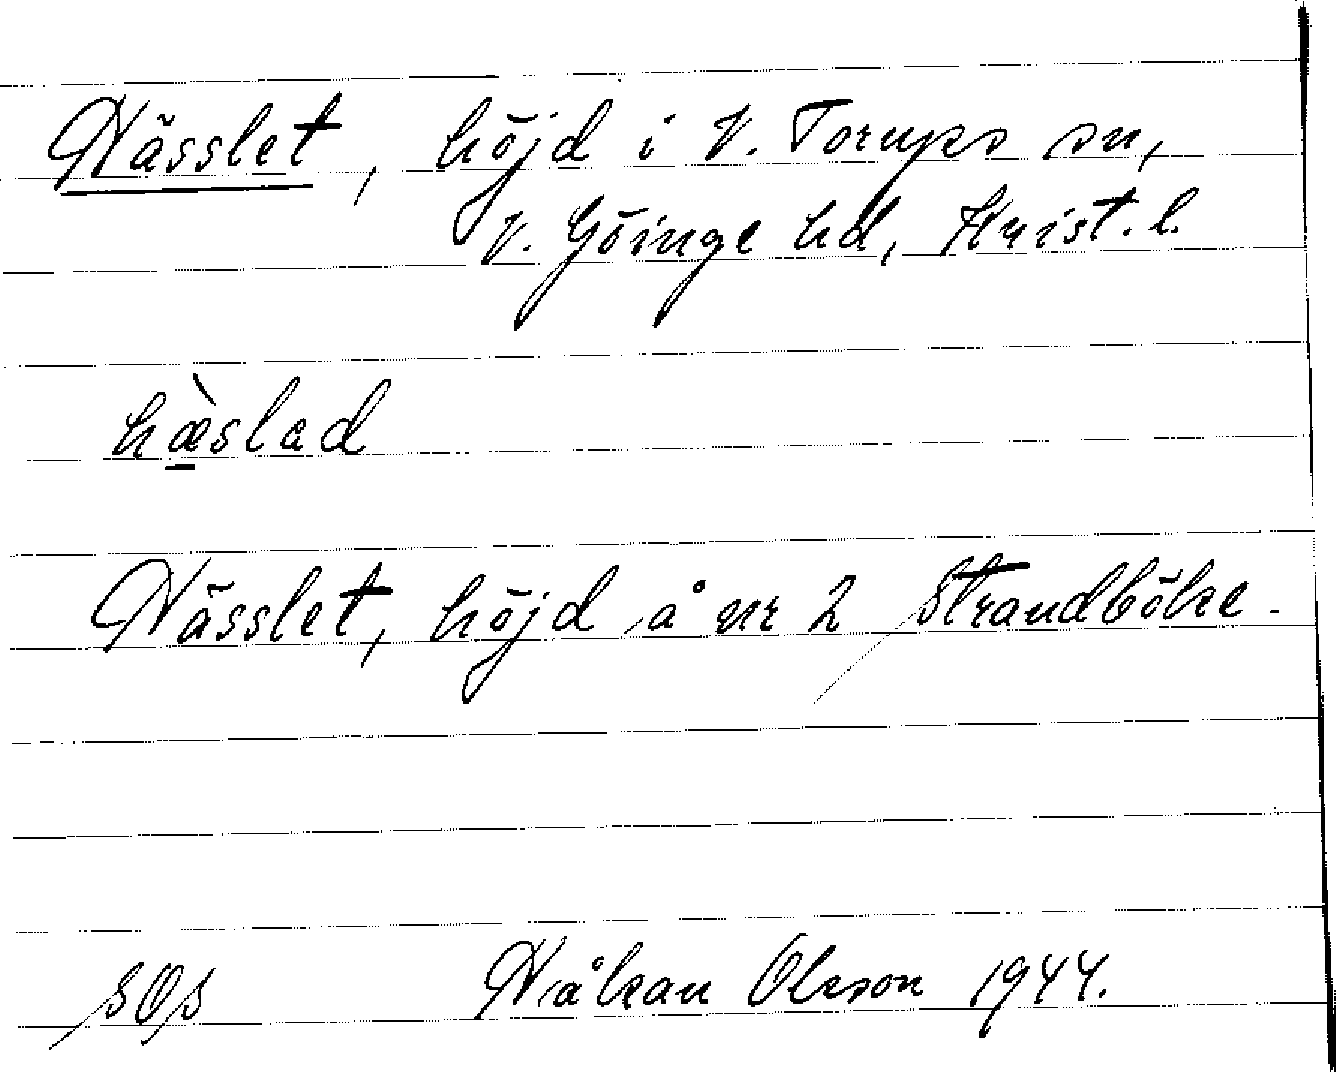 Hässlet, höjd i V. Torups sn,
V. Göinge hd, Krist. l.
hæ̱̀slad
Hässlet, höjd å nr 2 Strandböke.
SOS Håkan Olsson 1944.